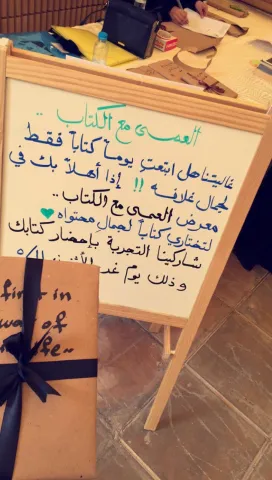 العمى مع الكتاب ..
غاليتنا هل ابتعتِ يوماً كتاباً فقط
لجمال غلافه !! إذاً أهلاً بك في
معرض العمى مع الكتاب ..
لتختاري كتاباً لجمال محتواه
شاركينا التجربة بإحضار كتابك
وذلك يوم غد
in
of